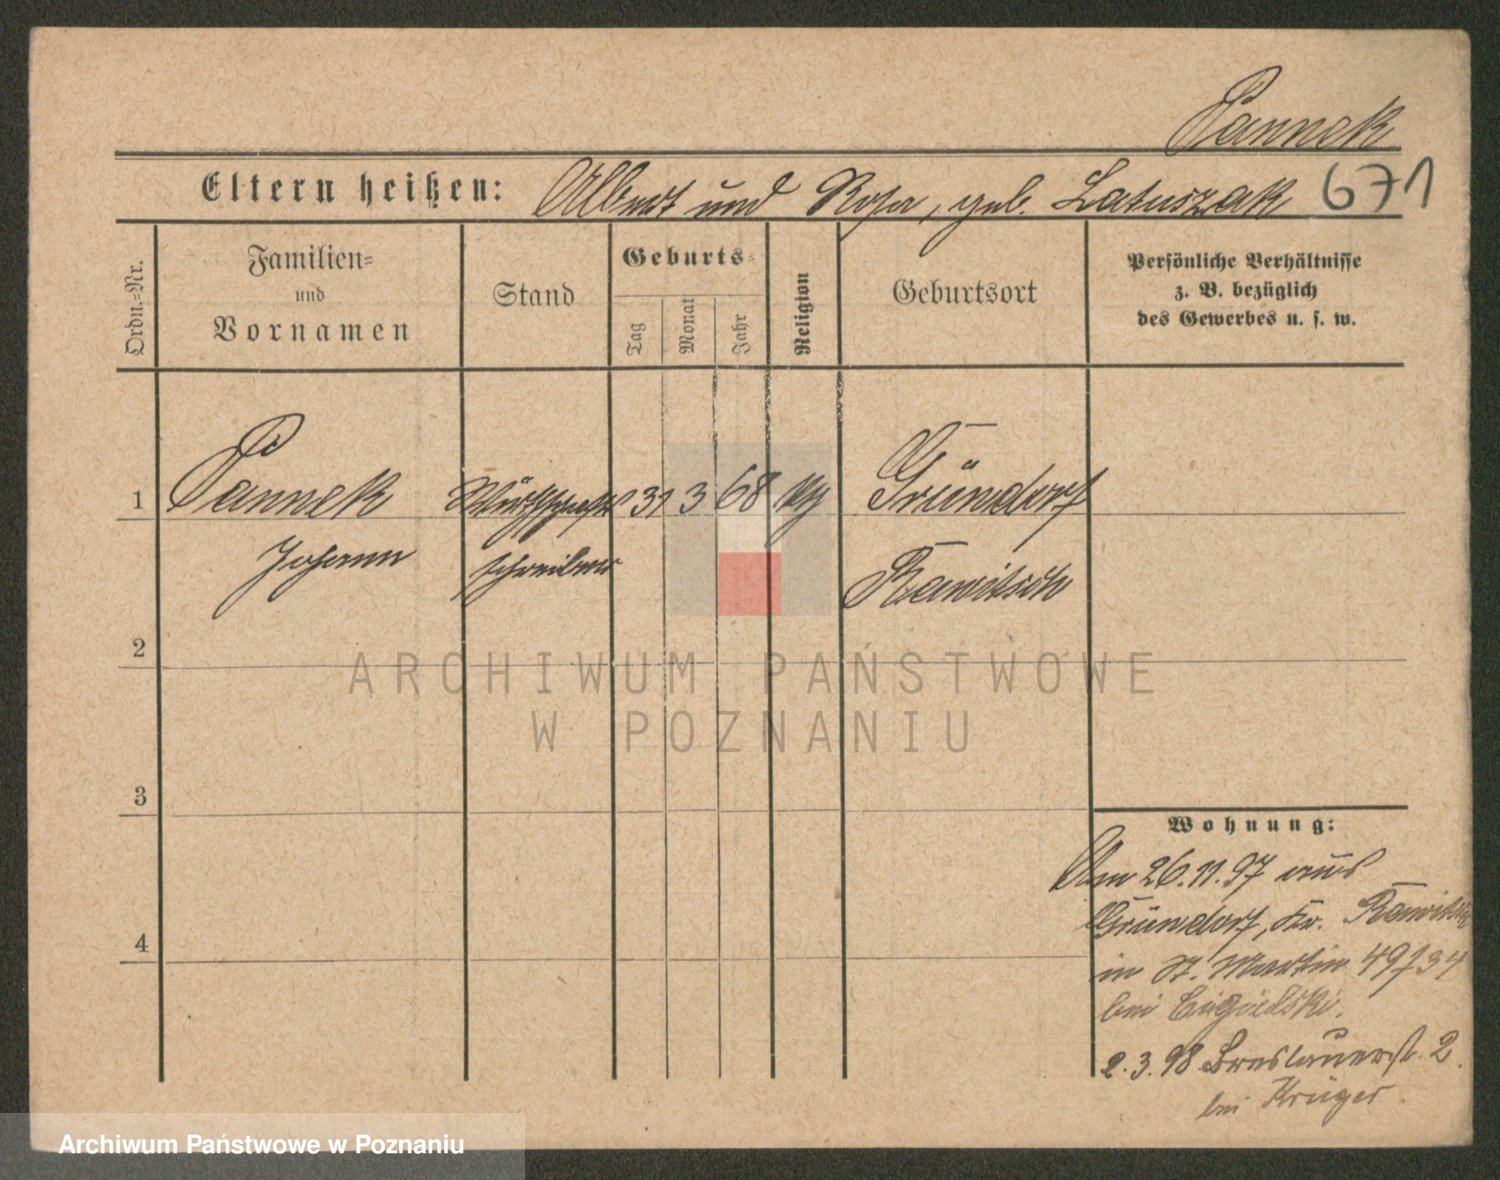 Pannek
Eltern heißen: Albert und Rosa, geb. Latuszak 671
Ordn.=Nr.
Familien=
und
Vornamen
Stand
Geburts=
Tag
Monat
Jahr
Religion
Geburtsort
Persönliche Verhältnisse
z. B. bezüglich
des Gewerbes u. s. w.
1 Pannek Wirthschafts 31 3 68 Gründorf
Johann schreiber Rawitsch
2
3
4
Wohnung:
Am 26.11.97 aus
Gründorf, Kr. Rawitsch
in St. Martin 49/34
bei Cegielski.
2.3.98 Breslauerst. 2.
bei Krüger
ARCHIWUM PAŃSTWOWE
W POZNANIU
Archiwum Państwowe w Poznaniu